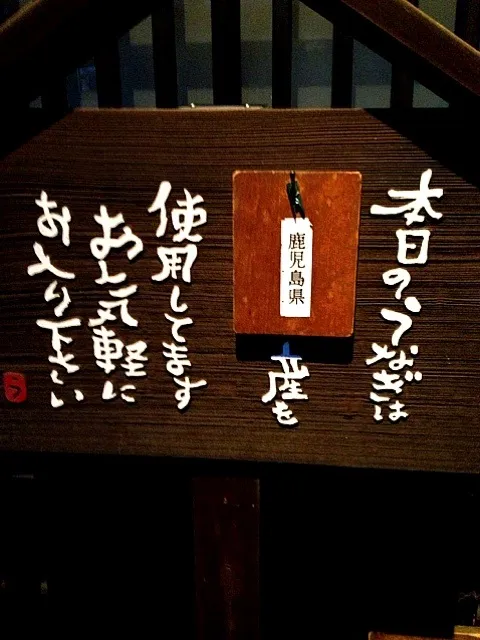 本日のうなぎは
鹿児島県
産を
使用してます
お気軽に
お入り下さい
う